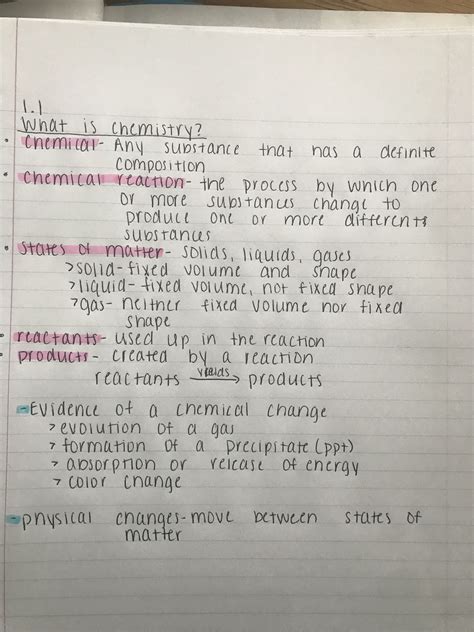 1.1
What is chemistry?
• Chemical- Any substance that has a definite
composition
• Chemical reaction- the process by which one
or more substances change to
produce one or more differents
substances
• States of matter- solids, liquids, gases
>solid- fixed volume and shape
>liquid- fixed volume, not fixed shape
>gas- neither fixed volume nor fixed
shape
• reactants- used up in the reaction
• products- created by a reaction
reactants yields→ products
-Evidence of a chemical change
> evolution of a gas
> formation of a precipitate (ppt)
> absorption or release of energy
> color change
-physical changes-move between states of
matter